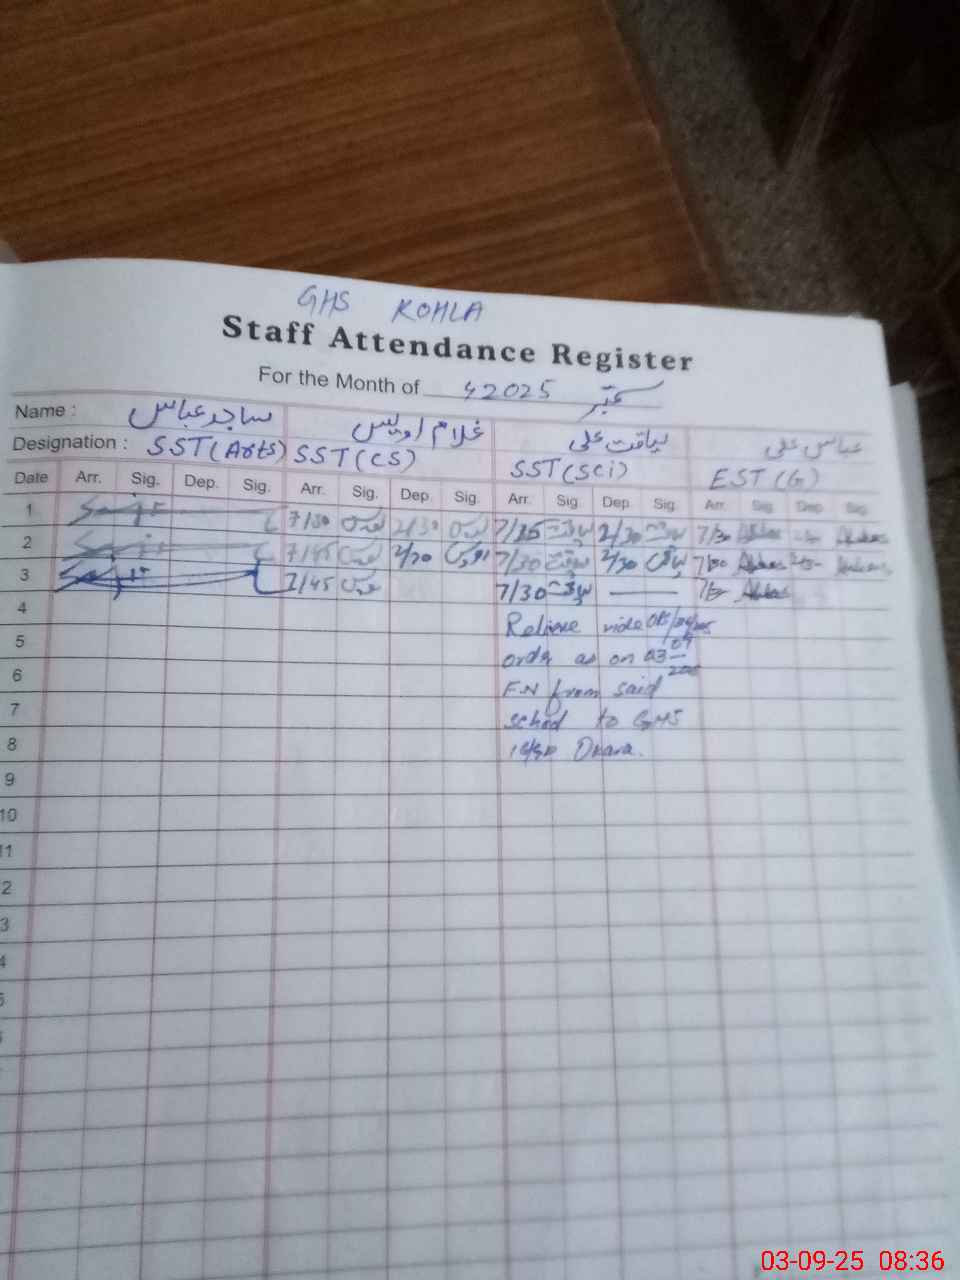 GHS KOHLA
Staff Attendance Register
For the Month of ستمبر 2025ء
Name : ساجد عباس غلام اویس لیاقت علی عباس علی
Designation : SST (Arts) SST (CS) SST (Sci) EST (G)
Date Arr. Sig. Dep. Sig. Arr. Sig. Dep. Sig. Arr. Sig. Dep. Sig. Arr. Sig. Dep. Sig.
1 7/30 اویس 2/30 اویس 7/25 لیاقت 2/30 لیاقت 7/30 Abbas Abbas
2 7/45 اویس 2/30 اویس 7/30 لیاقت 2/30 لیاقت 7/30 Abbas Abbas
3 7/45 اویس 7/30 لیاقت 7/30 Abbas
4 Relieve vide
5 as on 03 09
6 F.N from said
7 to GHS
8 Okara.
9
10
11
2
3
4
5
03-09-25 08:36